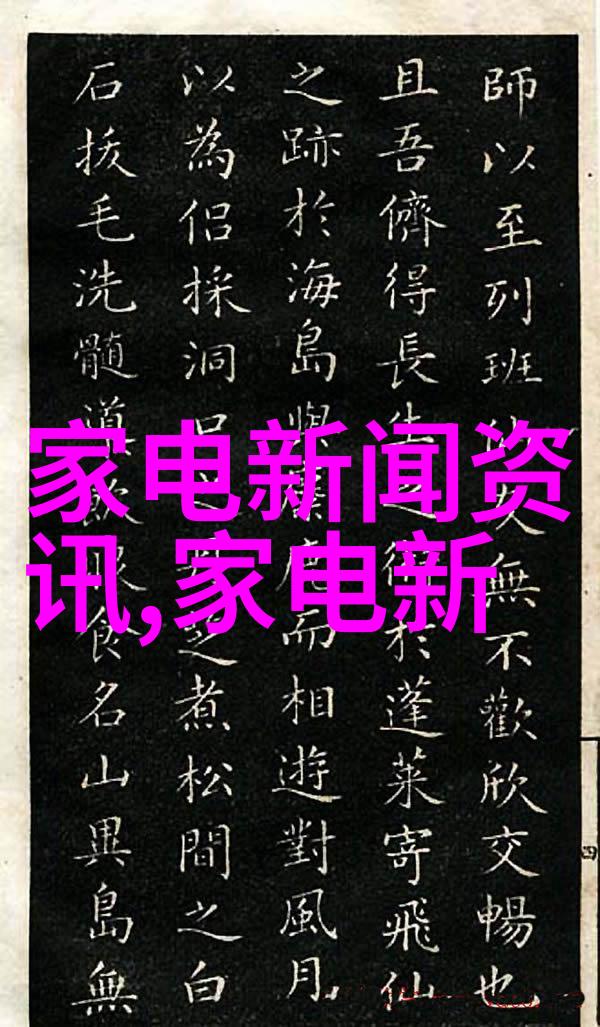 師以至列班无不歡欣交暢也
且吾儕得長生之於蓬萊寄飛仙
之跡於海島與而相遊對風月
以為侶採洞口芝煮松間之白
石拔毛洗髓導飲服食名山異島無
家电新闻资
讯,家电新